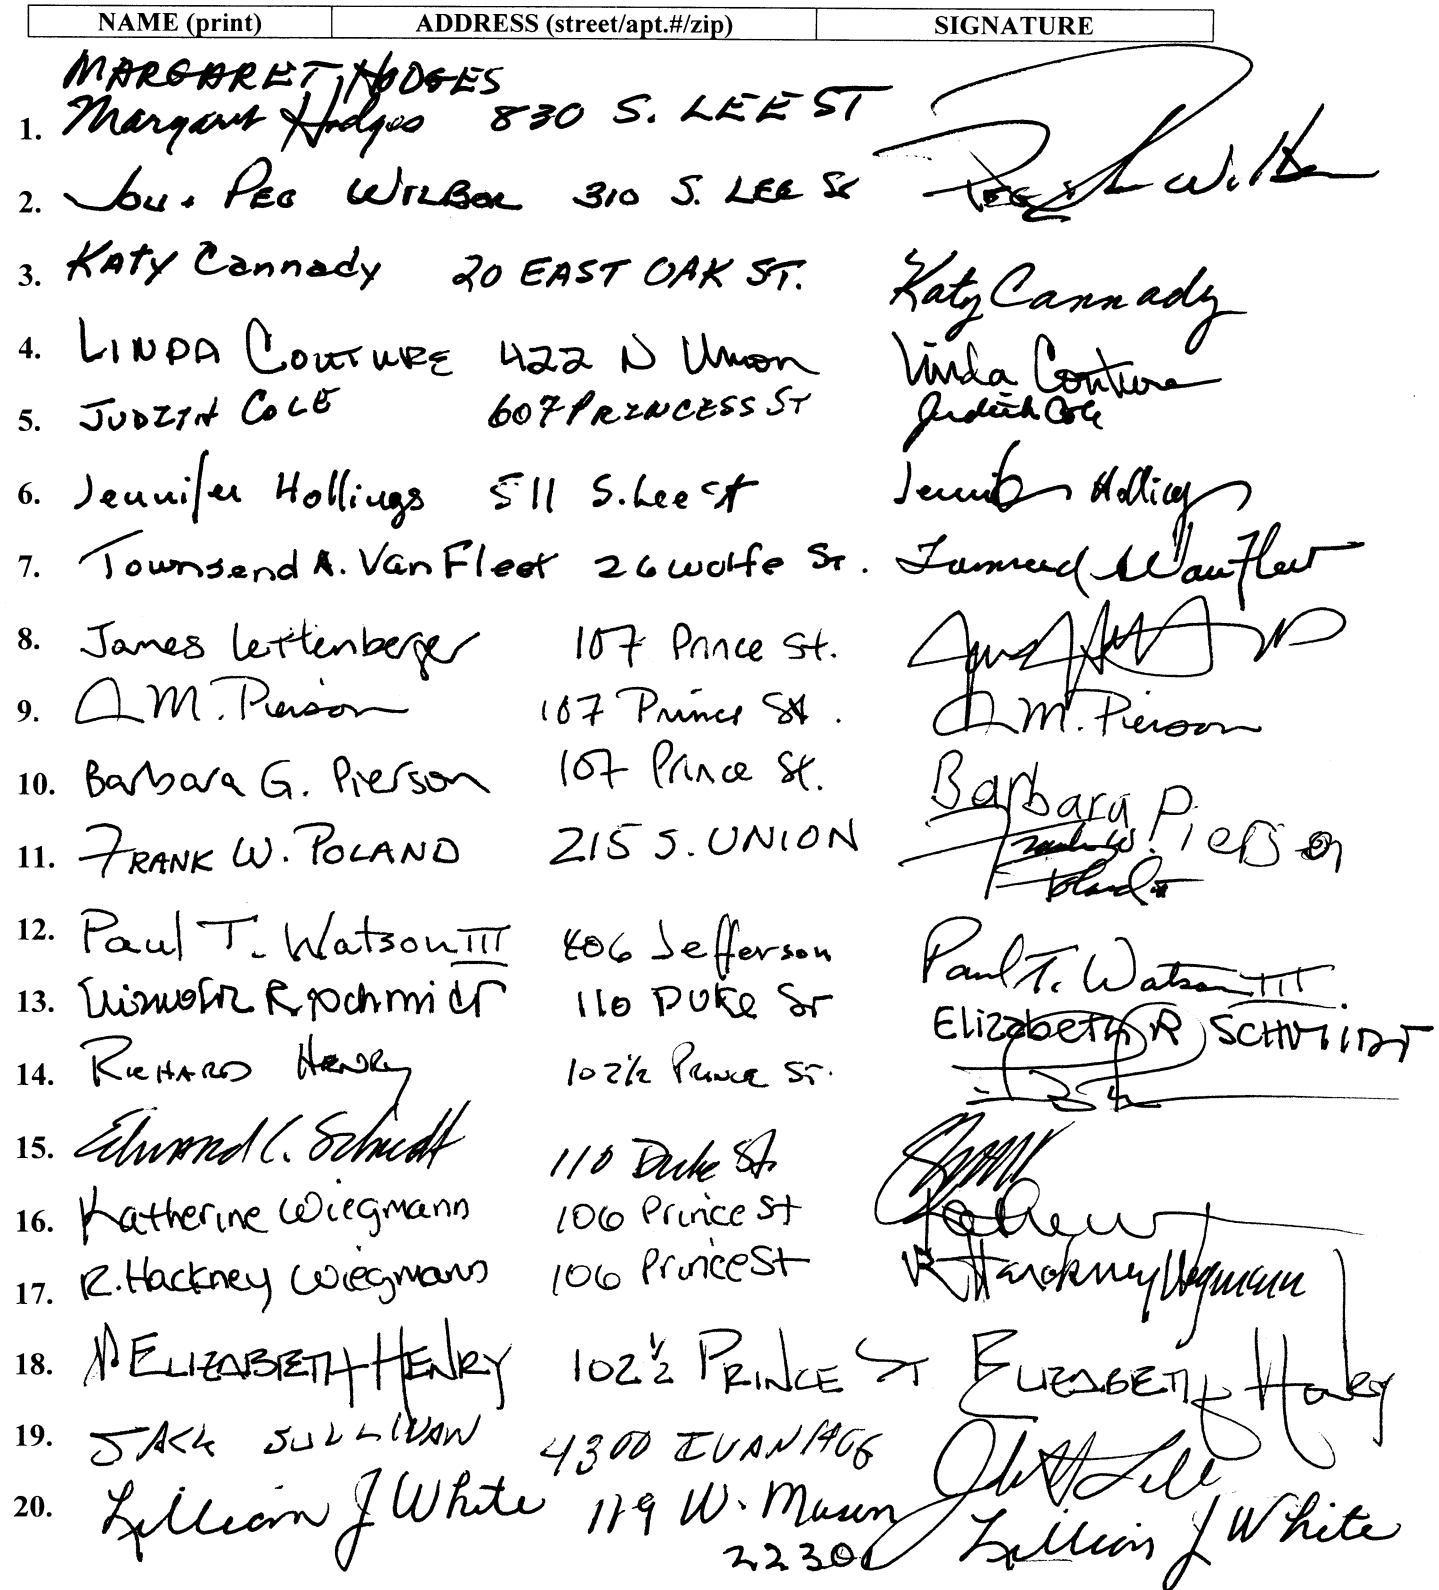 NAME (print) ADDRESS (street/apt.#/zip) SIGNATURE
MARGARET HODGES
1. Margaret Hodges 830 S. LEE ST
2. Jon + PEG WILBOR 310 S. LEE St
3. KATY Cannady 20 EAST OAK ST. Katy Cannady
4. LINDA COUTURE 422 N Union Linda Couture
5. JUDITH COLE 607 PRINCESS ST Judith Cole
6. Jennifer Hollings 511 S. Lee St Jennifer Hollings
7. Townsend A. Van Fleet 26 Wolfe St. Townsend A Van Fleet
8. James Lettenberger 107 Prince St.
9. A M. Pierson 107 Prince St. A M. Pierson
10. Barbara G. Pierson 107 Prince St. Barbara Pierson
11. FRANK W. POLAND 215 S. UNION Frank W. Poland
12. Paul T. Watson III 406 Jefferson Paul T. Watson III
13. R. Schmidt 110 DUKE ST Elizabeth R SCHMIDT
14. RICHARD HENRY 102 1/2 PRINCE ST.
15. Edward C. Schmidt 110 Duke St.
16. Katherine Wiegmann 106 Prince St
17. R. Hackney Wiegmann 106 Prince St R Hackney Wiegmann
18. ELIZABETH HENRY 102 1/2 PRINCE ST ELIZABETH Henry
19. JACK SULLIVAN 4300 IVANHOE
20. Lillian J White 119 W. Mason Lillian J White
22301